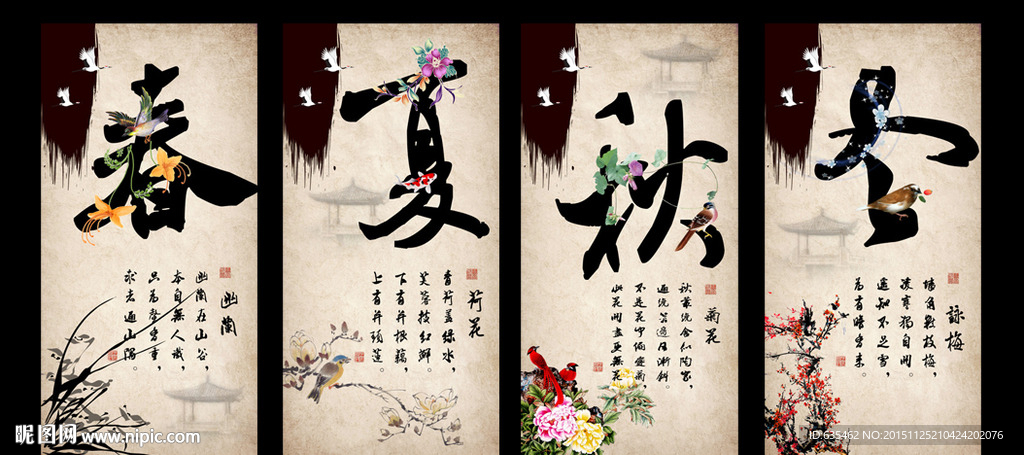 春
幽蘭
幽蘭在山谷，
本自無人識，
只為馨香重，
求者遍山隅。
夏
荷花
青荷蓋綠水，
芙蓉披紅鮮。
下有并根藕，
上有并頭蓮。
秋
菊花
秋叢繞舍似陶家，
遍繞籬邊日漸斜。
不是花中偏愛菊，
此花開盡更無花。
冬
詠梅
墻角數枝梅，
凌寒獨自開。
遥知不是雪，
為有暗香來。
昵图网 www.nipic.com
ID:635462 NO:20151125210424202076